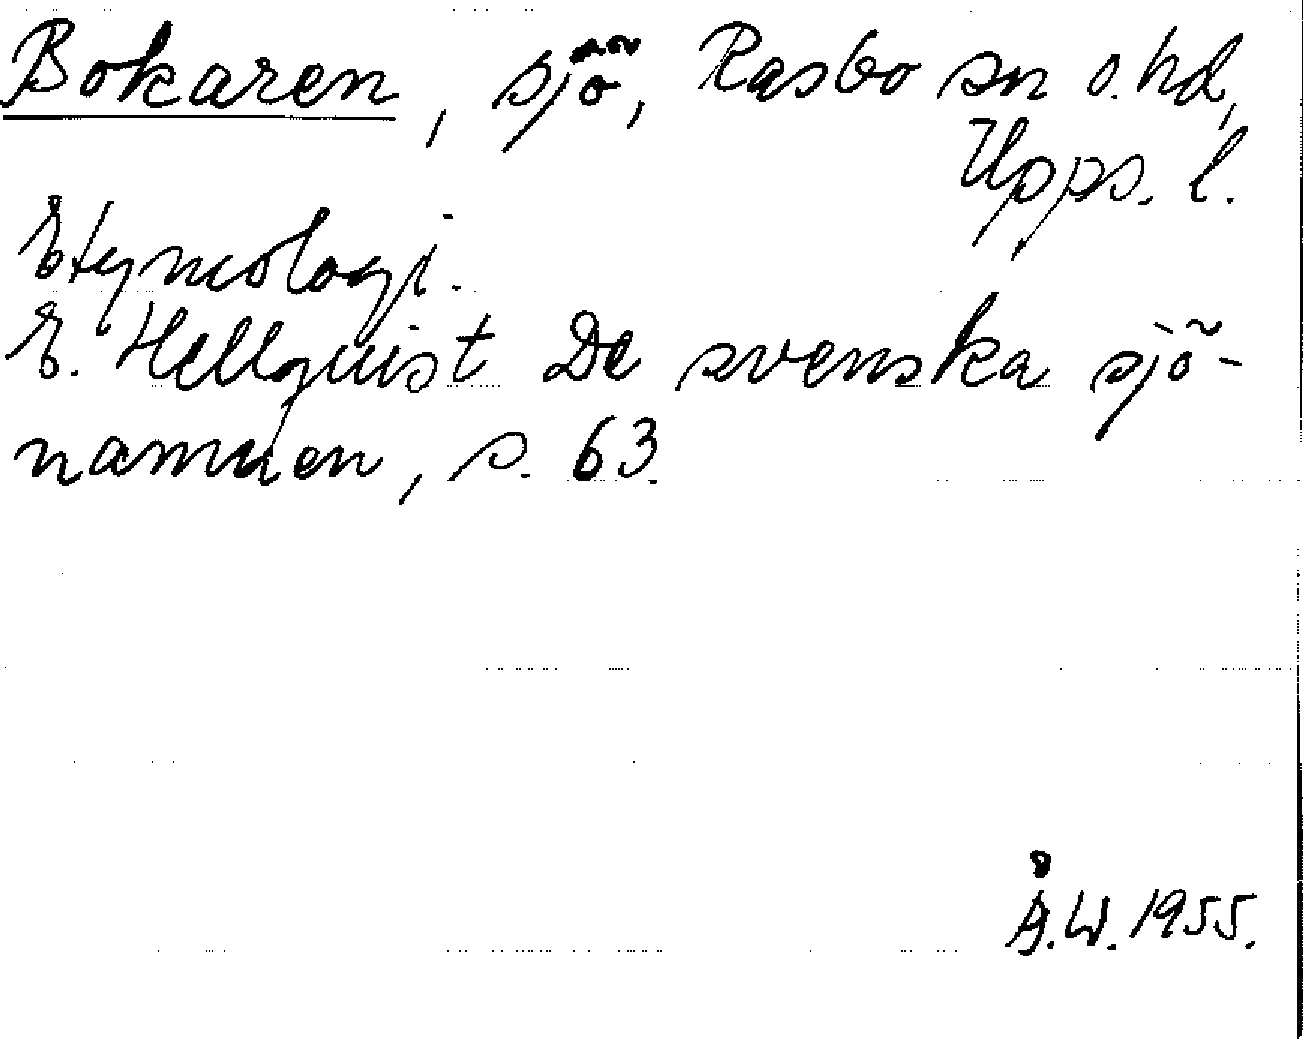 Bokaren, sjö, Rasbo sn o. hd,
Upps. l.
Etymologi.
E. Hellquist De svenska sjö-
namnen, s. 63.
Å.W. 1955.